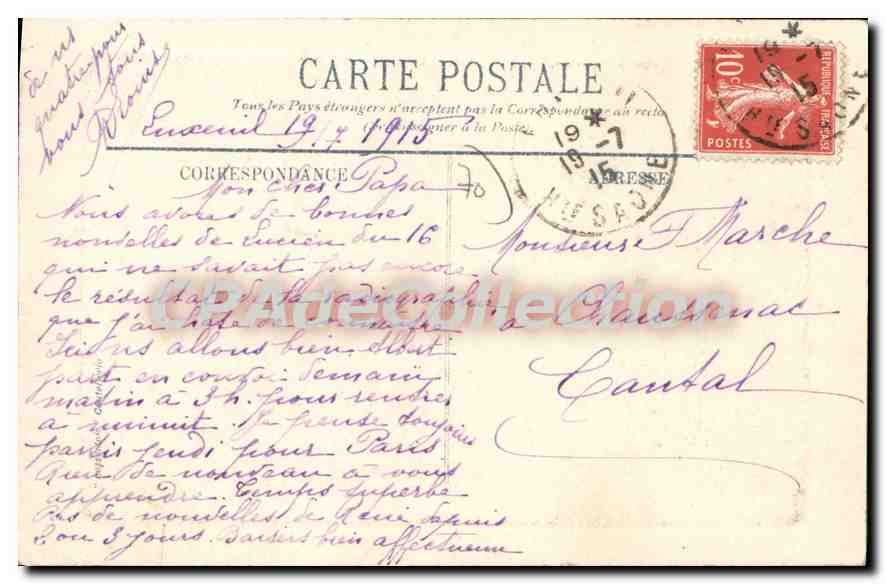 CARTE POSTALE
Tous les Pays étrangers n'acceptent pas la Correspondance au recto
(se renseigner à la Poste)
Luxeuil 19/7 1915
CORRESPONDANCE
ADRESSE
Mon cher Papa
Nous avons de bonnes
nouvelles de Lucien du 16
qui ne savait pas encore
le résultat de la radiographie
que j'ai hâte de connaître
Ici ns allons bien Albert
part en convoi demain
matin à 3 h. pour rentrer
à minuit. Je pense toujours
partir jeudi pour Paris
Rien de nouveau à vous
apprendre. Temps superbe
Pas de nouvelles de René depuis
2 ou 3 jours. Baisers bien affectueux
de ns
quatre pour
vous tous
70
Monsieur F Marche
à Chaussenac
Cantal
19 *
19 -7
15
Hte SAONE
19 *
19 -7
15
10c
REPUBLIQUE FRANÇAISE
POSTES
CPAdeCollection